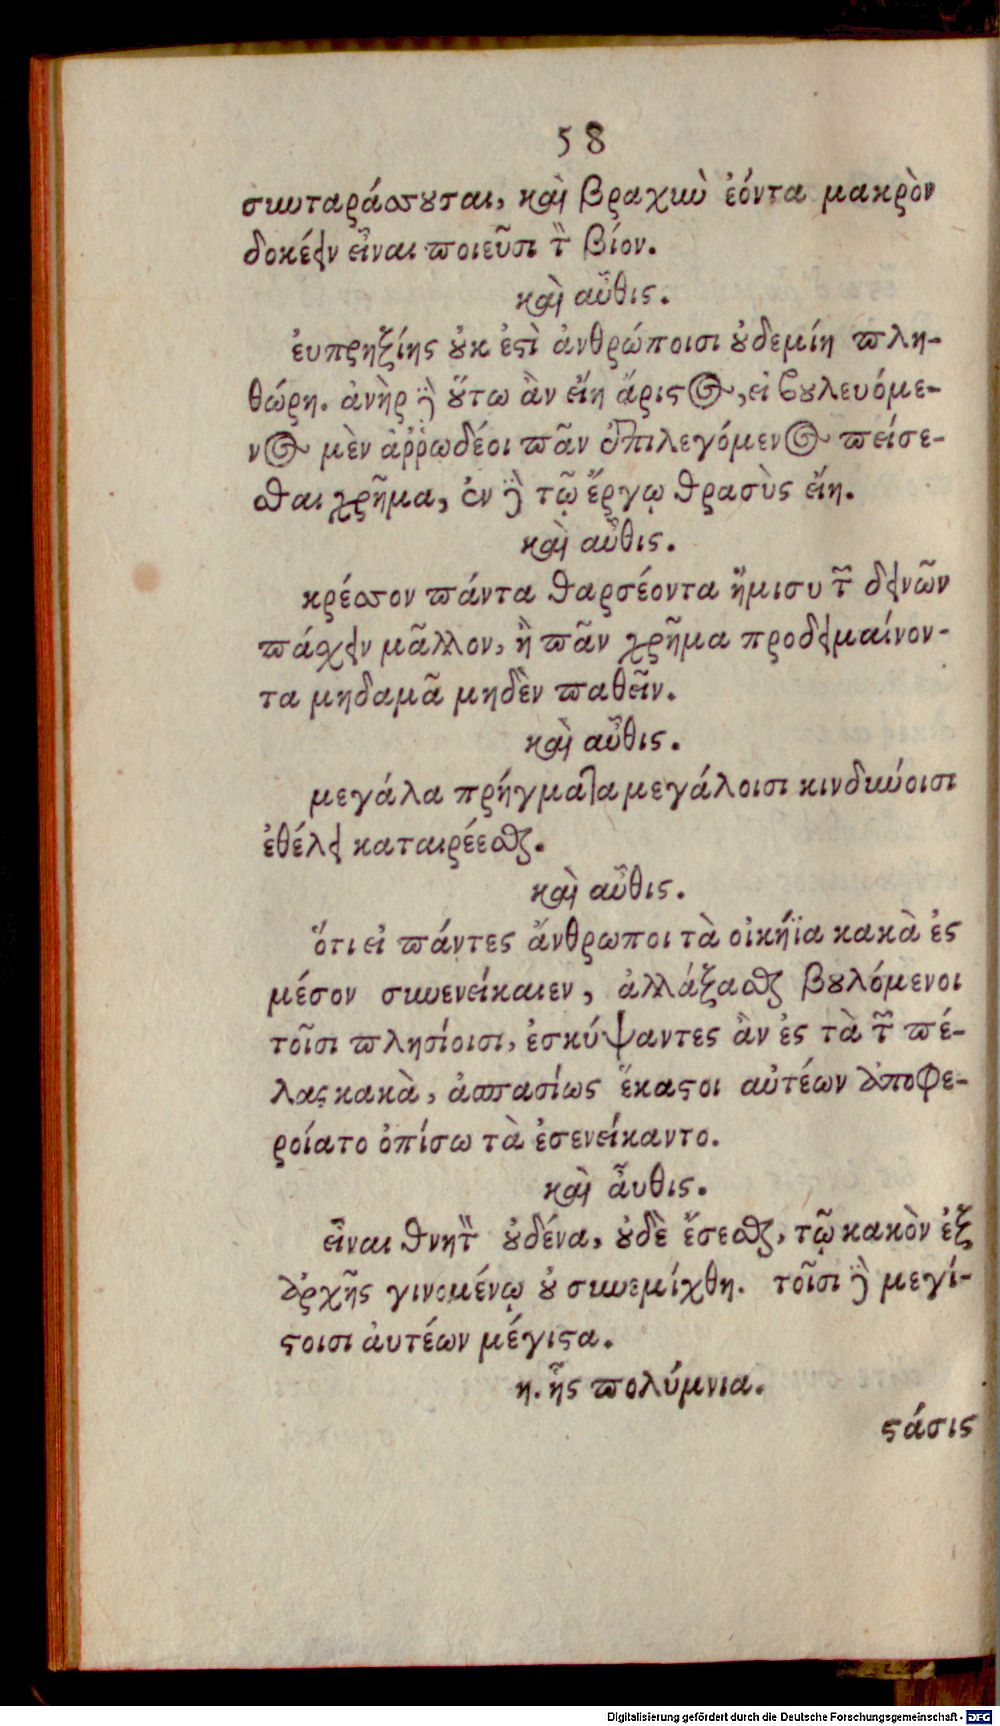 58
συνταράσσουσαι, καὶ βραχὺν ἐόντα μακρὸν
δοκέειν εἶναι ποιεῦσι τὸν βίον.
καὶ αὖθις.
ἐυπρηξίης οὐκ ἐστὶ ἀνθρώποισι οὐδεμίη πλη-
θώρη. ἀνὴρ δὲ οὕτω ἂν εἴη ἄριστος, εἰ βουλευόμε-
νος μὲν ἀῤῥωδέοι πᾶν ἐπιλεγόμενος πείσε-
σθαι χρῆμα, ἐν δὲ τῷ ἔργῳ θρασὺς εἴη.
καὶ αὖθις.
κρέσσον πάντα θαρσέοντα ἥμισυ τῶν δεινῶν
πάσχειν μᾶλλον, ἢ πᾶν χρῆμα προδειμαίνον-
τα μηδαμᾶ μηδὲν παθεῖν.
καὶ αὖθις.
μεγάλα πρήγματα μεγάλοισι κινδύνοισι
ἐθέλει καταιρέεσθαι.
καὶ αὖθις.
ὅτι εἰ πάντες ἄνθρωποι τὰ οἰκήϊα κακὰ ἐς
μέσον συνενείκαιεν, ἀλλάξασθαι βουλόμενοι
τοῖσι πλησίοισι, ἐσκύψαντες ἂν ἐς τὰ τῶν πέ-
λας κακὰ, ἀσπασίως ἕκαστοι αὐτέων ἀποφε-
ροίατο ὀπίσω τὰ ἐσενείκαντο.
καὶ ἆυθις.
εἶναι θνητὸν οὐδένα, οὐδὲ ἔσεσθαι, τῷ κακὸν ἐξ
ἀρχῆς γινομένῳ οὐ συνεμίχθη. τοῖσι δὲ μεγί-
στοισι ἀυτέων μέγιστα.
η. ἧς πολύμνια.
στάσις
Digitalisierung gefördert durch die Deutsche Forschungsgemeinschaft - DFG